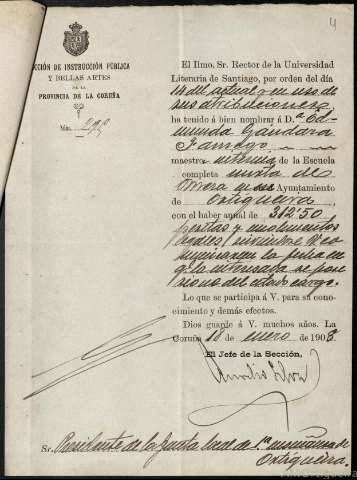 4
SECCIÓN DE INSTRUCCIÓN PÚBLICA
Y BELLAS ARTES
DE LA
PROVINCIA DE LA CORUÑA
Núm.
El Ilmo. Sr. Rector de la Universidad
Literaria de Santiago, por orden del día
del actual y en uso de
sus atribuciones
ha tenido á bien nombrar á D.ª Ed-
munda Gandara
maestra interina de la Escuela
completa mixta de
Ayuntamiento
de Ortigueira
con el haber anual de 312'50
pesetas y emolumentos
legales,
la fecha en
q. la interesada se pose-
sione del citado cargo.
Lo que se participa á V. para su cono-
cimiento y demás efectos.
Dios guarde á V. muchos años. La
Coruña 18 de enero de 1908.
El Jefe de la Sección,
Aurelio
Sr. Presidente de la Junta local de 1.ª enseñanza de
Ortigueira.